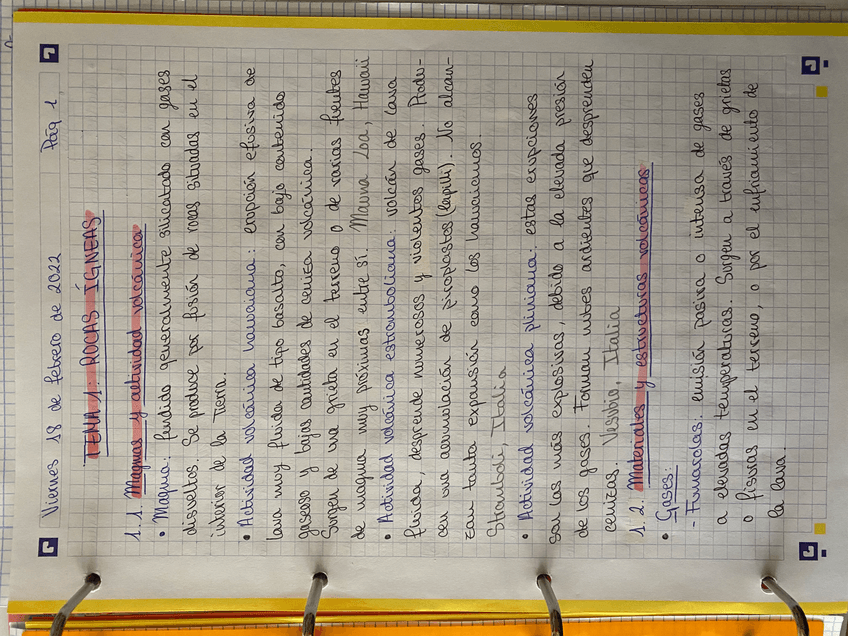 Viernes 18 de febrero de 2022 Pág 1
TEMA 1: ROCAS ÍGNEAS
1.1. Magmas y actividad volcánica
• Magma: fundido generalmente silicatado con gases
disueltos. Se produce por fusión de rocas situadas en el
interior de la Tierra.
• Actividad volcánica hawaiana: erupción efusiva de
lava muy fluida de tipo basalto, con bajo contenido
gaseoso y bajas cantidades de ceniza volcánica.
Surgen de una grieta en el terreno o de varias fuentes
de magma muy próximas entre sí. Mauna Loa, Hawaii
• Actividad volcánica estromboliana: volcán de lava
fluida, desprende numerosos y violentos gases. Produ-
cen una acumulación de piroplastos (lapilli). No alcan-
zan tanta expansión como los hawaianos
Stromboli, Italia
• Actividad volcánica pliniana: estas erupciones
son las más explosivas, debido a la elevada presión
de los gases. Forman nubes ardientes que desprenden
cenizas. Vesubio, Italia
1.2. Materiales y estructuras volcánicas
• Gases:
- Fumarolas: emisión pasiva o intensa de gases
a elevadas temperaturas. Surgen a través de grietas
o fisuras en el terreno, o por el enfriamiento de
la lava.